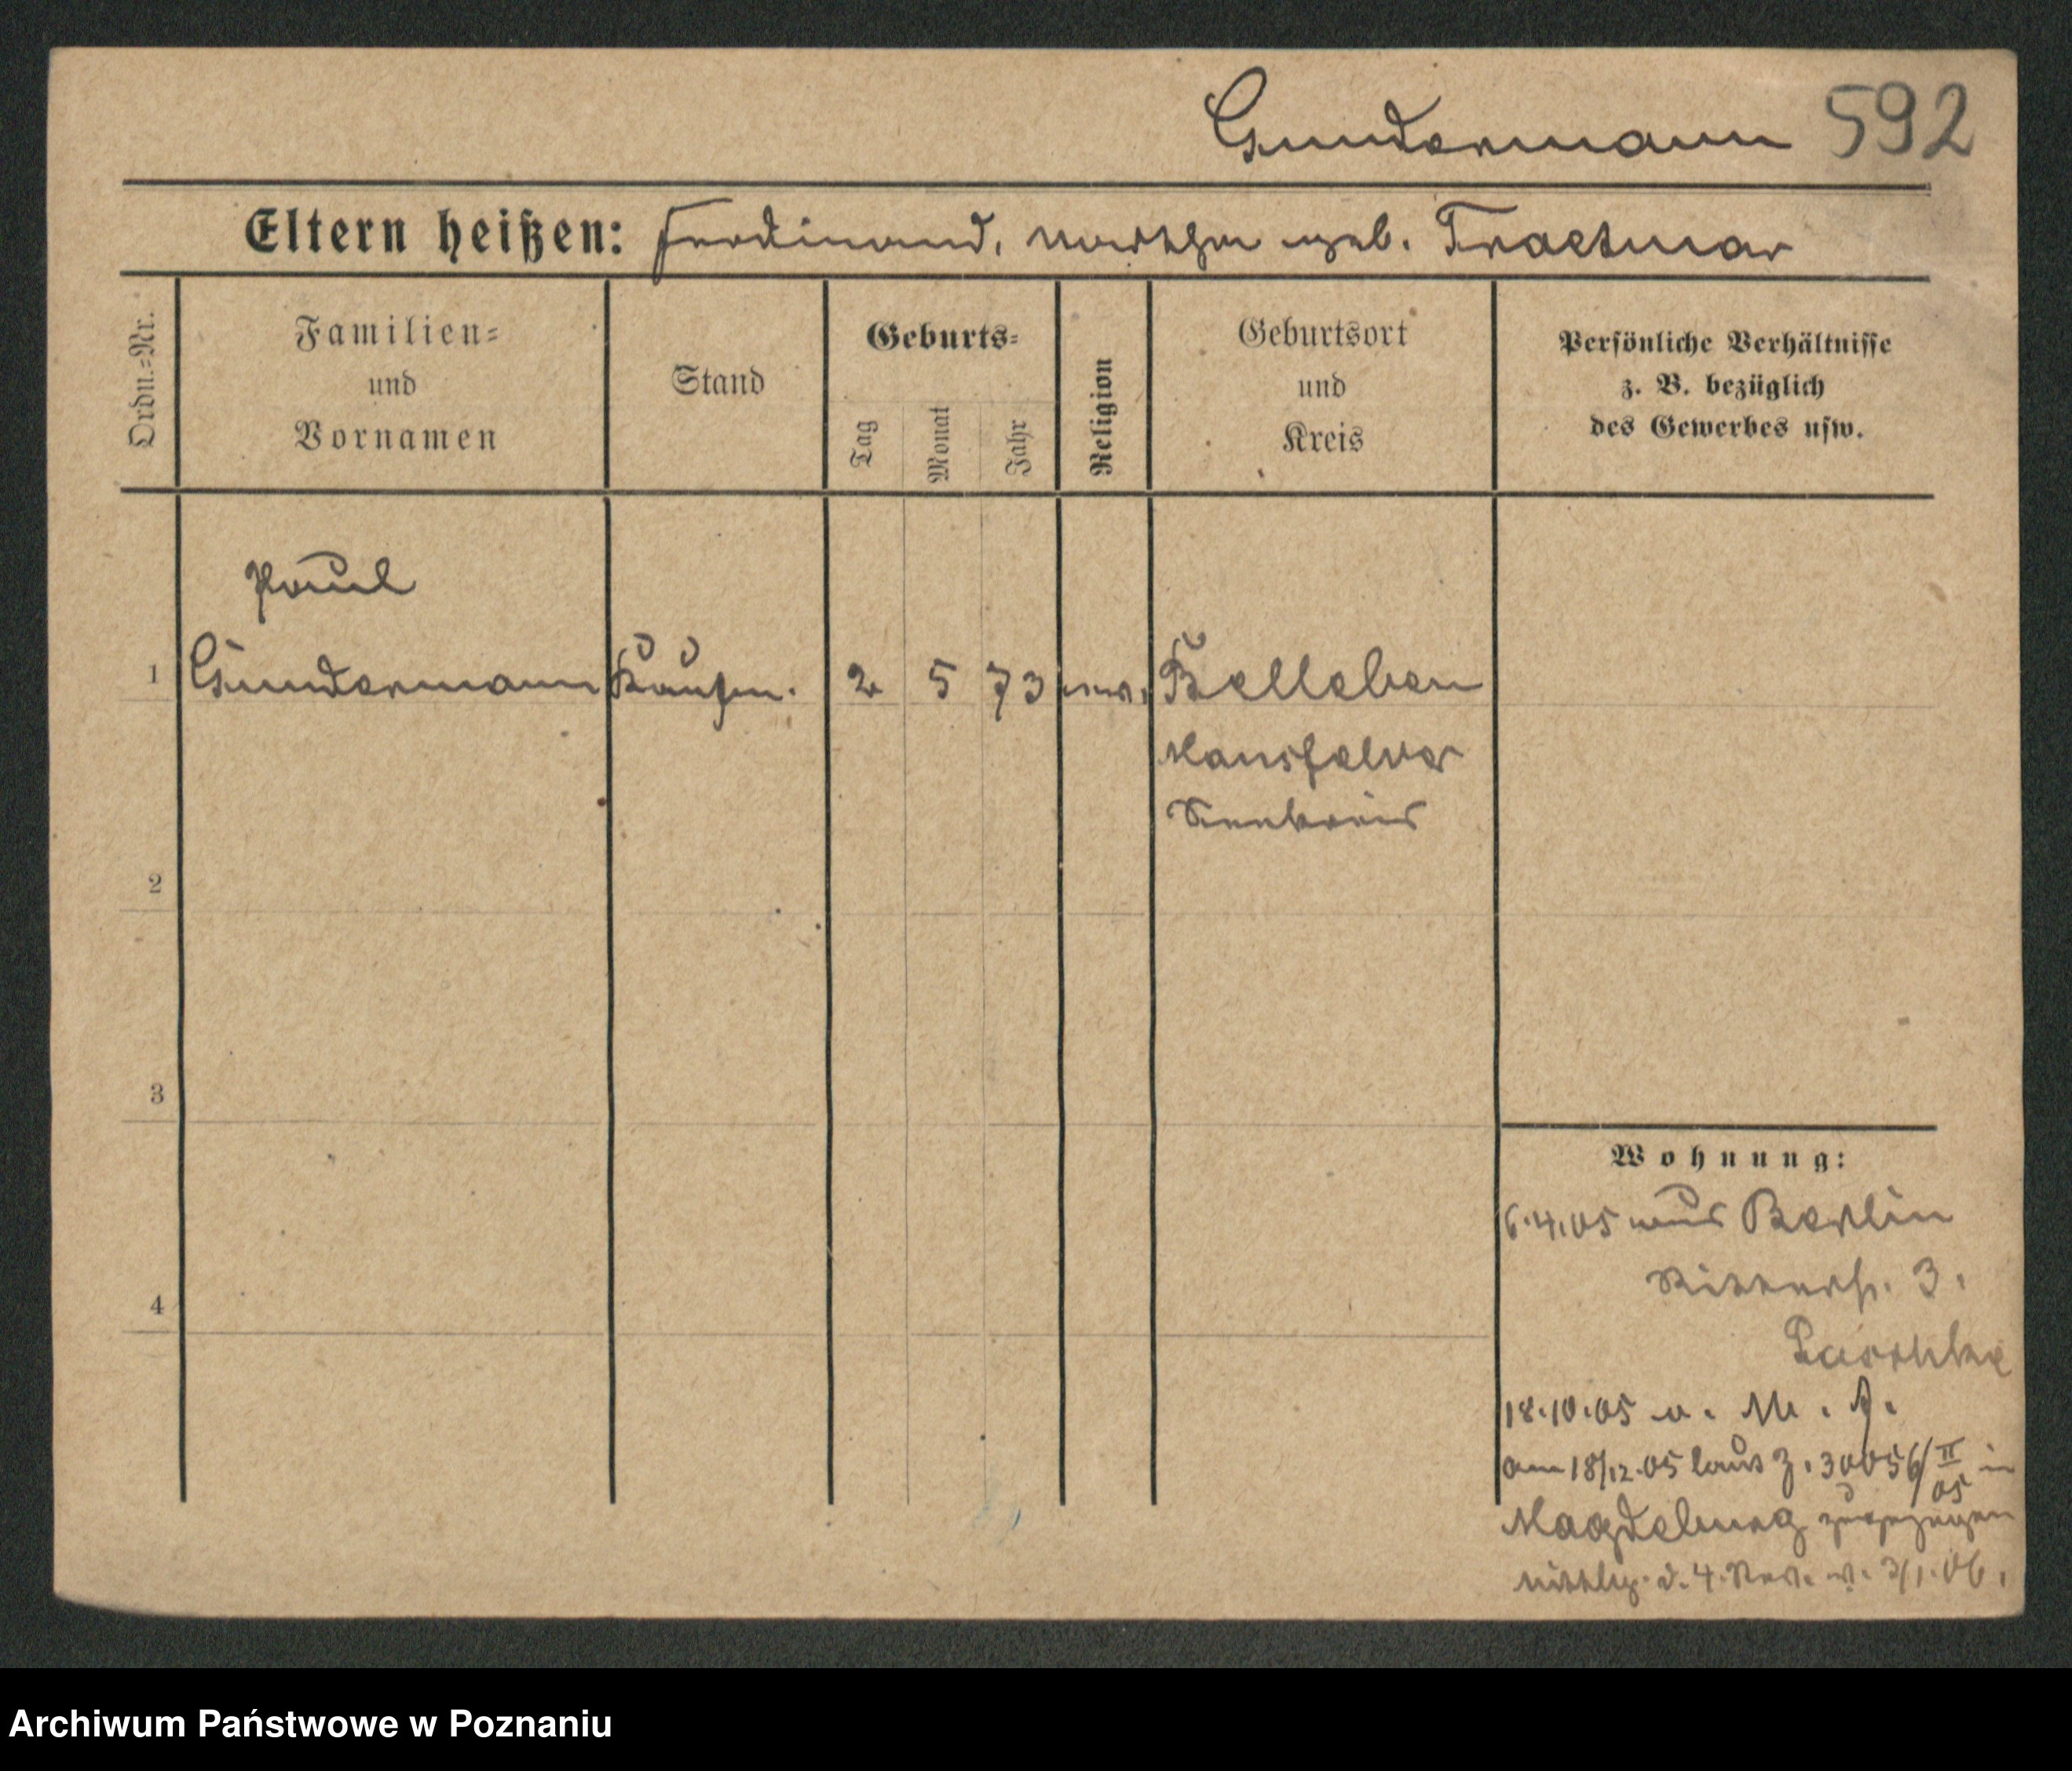 Gundermann 592
Eltern heißen: Ferdinand, Martha geb. Traetmar
Ordn.-Nr.
Familien-
und
Vornamen
Stand
Geburts-
Tag
Monat
Jahr
Religion
Geburtsort
und
Kreis
Persönliche Verhältnisse
z. B. bezüglich
des Gewerbes usw.
Paul
1 Gundermann Kaufm. 2 5 73 ev. Belleben
Mansfelder
Seekreis
2
3
4
Wohnung:
6.4.05 aus Berlin
Ritterstr. 3.
18.10.05
am 18/12.05 laut Z. 30056/II 05 in
Magdeburg zugezogen
d. 4. Rev. v. 3/1.06.
Archiwum Państwowe w Poznaniu